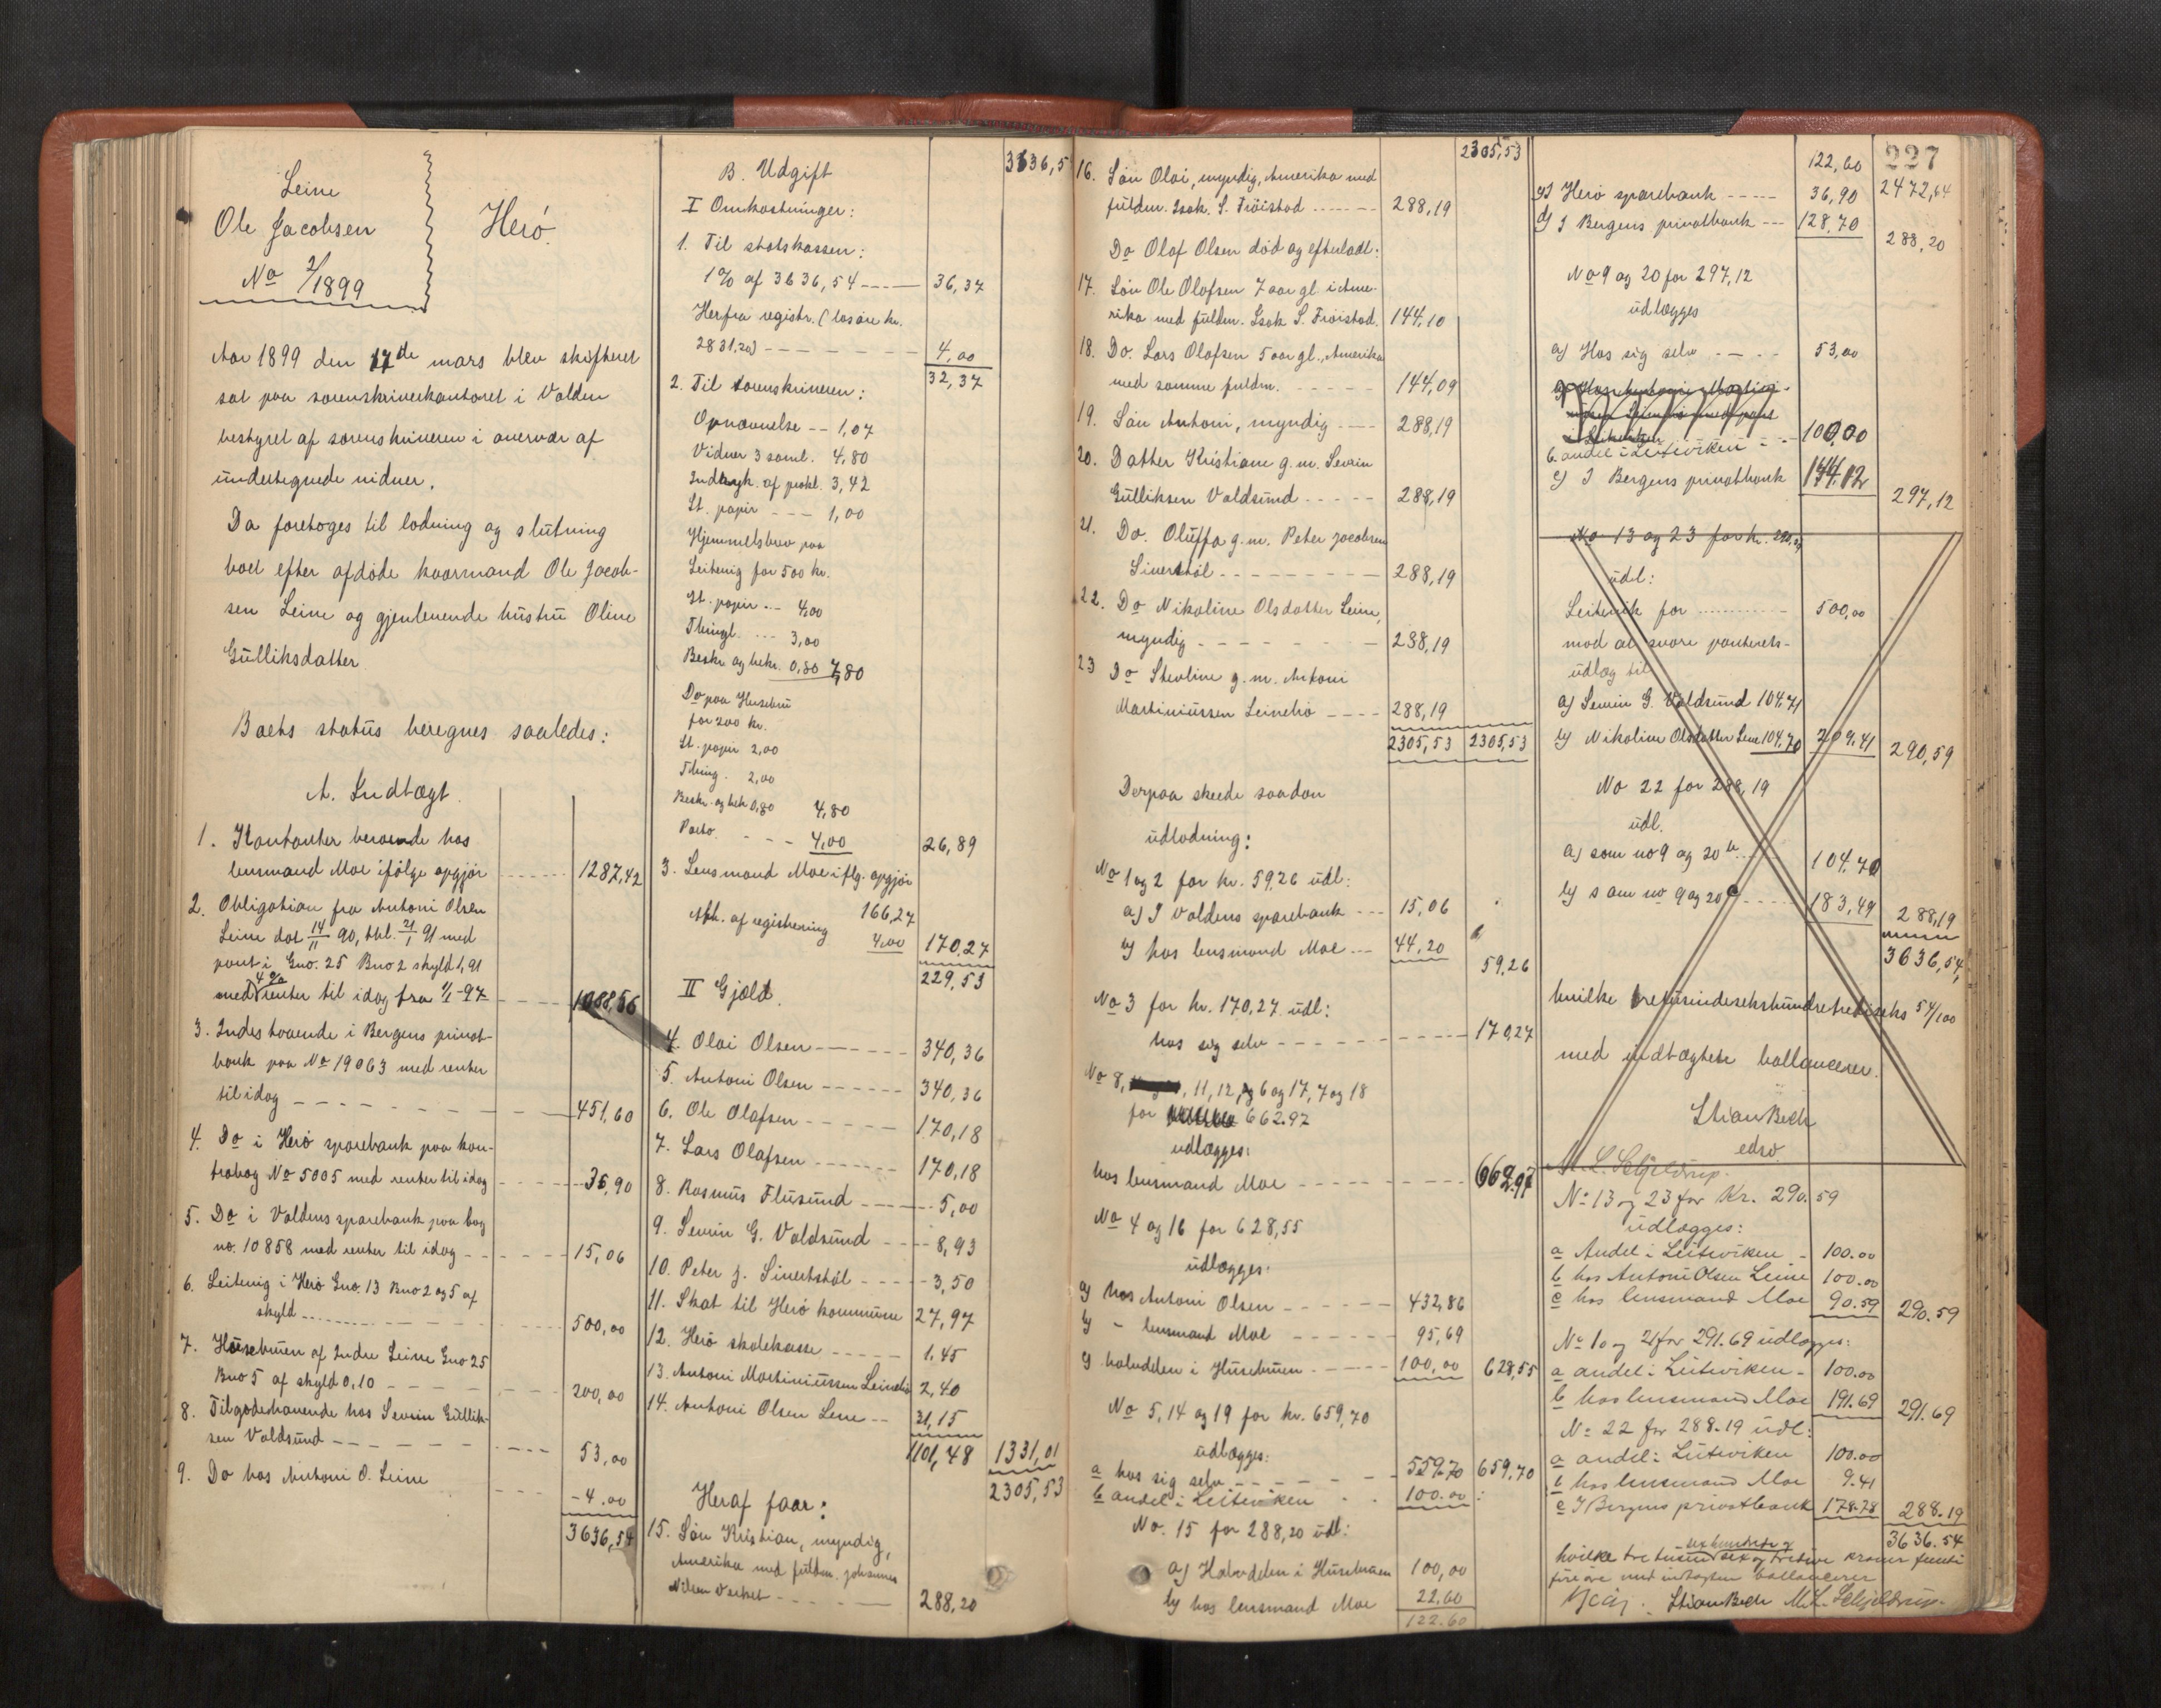 Leine
Ole Jacobsen
No 2/1899
Herö.
Aar 1899 den 17de mars blev skifteret
sat paa sorenskriverkontoret i Volden
bestyret af sorenskriveren i overvær af
undertegnede vidner.
Da foretoges til lodning og slutning
boet efter afdøde kaarmand Ole Jacob-
sen Leine og gjenlevende hustru Oline
Gulliksdatter.
Boets status beregnes saaledes:
A. Indtægt.
1. Kontanter beroende hos
lensmand Moe ifölge opgjör ------ 1287,42
2. Obligation fra Antoni Olsen
Leine dat 14/11 90, tbl. 21/1 91 med
pant i Gno. 25 Bno 2 skyld 1,91
med 4% renter til idag fra 1/1-97 ---- 1088,56
3. Indestaaende i Bergens privat-
bank paa No 19063 med renter
til idag ------- 451,60
4. Do i Herö sparebank paa kon-
trabog No 5005 med renter til idag ----- 36,90
5. Do i Voldens sparebank paa bog
no. 10858 med renter til idag ------ 15,06
6. Leitevig i Herö Gno. 13 Bno 2 og 5 af
skyld ------- 500,00
7. Husebruen af Indre Leine Gno 25
Bno 5 af skyld 0,10 ------ 200,00
8. Tilgodehavende hos Severin Gullik-
sen Voldsund ------ 53,00
9. Do hos Antoni O. Leine --- 4.00
3636,54
3636,5
B. Udgift
I Omkostninger:
1. Til statskassen:
1% af 3636,54 ---- 36,37
Herfra registr. (løsöre kr.
2831,20) ------- 4,00
32,37
2. Til sorenskriveren:
Opnævnelse -- 1,07
Vidner 3 saml. 4,80
Indrygk. af prokl. 3,42
St. papir --- 1,00
Hjemmelsbrev paa
Leitevig for 500 kr.
St. papir --- 4,00
Thingl. --- 3,00
Beskr og bekr. 0,80 7,80
Do paa Husebru
for 200 kr.
St. papir 2,00
Thing. 2,00
Beskr. og bekr 0,80 4,80
Porto. -- 4,00 26,89
3. Lensmand Moe iflg. opgjör
166,27
Afh. af registrering
4,00 170,27
229,53
II Gjæld.
4. Olai Olsen ------ 340,36
5. Antoni Olsen ----- 340,36
6. Ole Olafsen ------ 170,18
7. Lars Olafsen ------ 170,18
8. Rasmus Flusund ---- 5,00
9. Severin G. Voldsund ---- 8,93
10. Peter J. Sivertstöl ----- 3,50
11. Skat til Herö kommune 27,97
12. Herö skolekasse ----- 1,45
13. Antoni Martiniussen Leinehö 2,40
14. Antoni Olsen Leine -- 31,15
1101,48 1331,01
2305,53
Heraf faar:
15. Sön Kristian, myndig,
Amerika med fuldm. Johannes
Nilsen ----- 288,20
2305,53
16. Sön Olai, myndig, Amerika med
fuldm. Isak. S. Fröistad ------ 288,19
Do Olaf Olsen död og efterladt:
17. Sön Ole Olafsen 7 aar gl. i Ame-
rika med fuldm. Isak S. Fröistad. 144,10
18. Do. Lars Olafsen 5 aar gl., Amerika
med samme fuldm. ----- 144,09
19. Sön Antoni, myndig --- 288,19
20. Datter Kristiane g. m. Severin
Gulliksen Voldsund ----- 288,19
21. Do. Oluffa g. m. Peter Jacobsen
Sivertstöl --------- 288,19
22. Do Nikoline Olsdatter Leine,
myndig ------- 288,19
23 Do Stevline g. m. Antoni
Martiniussen Leinehö ---- 288,19
2305,53 2305,53
Derpaa skeede saadan
udlodning:
No 1 og 2 for kr. 59,26 udl:
a) I Voldens sparebank --- 15,06
b) hos lensmand Moe --- 44,20
59,26
No 3 for kr. 170,27 udl:
hos sig selv --------- 170,27
No 8, 11, 12, 6 og 17, 7 og 18
for 662.97
udlægges:
hos lensmand Moe -------- 662,97
No 4 og 16 for 628,55
udlægges:
a) hos Antoni Olsen ----- 432,86
b) - lensmand Moe ------ 95,69
c) halvdelen i Husebruen ----- 100,00 628,55
No 5, 14 og 19 for kr. 659,70
udlægges:
a hos sig selv ------- 559.70 659,70
b andel i Leiteviken . . 100.00
No. 15 for 288,20 udl:
a) Halvdelen i Husebruen 100,00
b) hos lensmand Moe 22,60
122.60
227
122,60
c) I Herö sparebank ----- 36,90 2472,64
d) I Bergens privatbank --- 128,70
288,20
No 9 og 20 for 297,12
udlægges
a) Hos sig selv ---- 53,00
b. andel i Leiteviken - - 100,00
c) I Bergens privatbank 144.12
297,12
No 13 og 23 for kr. 290,59
udl:
Leitevik for ------ 500,00
mod at svare panterets-
udlæg til
a) Severin G. Voldsund 104,71
b) Nikoline Olsdatter Leine 104,70 209,41
290,59
No 22 for 288,19
udl.
a) som no 9 og 20 b ---- 104,70
b) som no 9 og 20 c ---- 183,49
288,19
3636,54,
hvilke tretusindesekshundredetredieseks 54/100
med indtægten ballancerer.
Stian Bech
edsv.
M. L. Schjeldrup.
No 13 og 23 for Kr. 290.59
udlægges:
a Andel i Leiteviken - 100.00
b hos Antoni Olsen Leine 100.00
c hos lensmand Moe 90.59 290.59
No 10 og 21 for 291.69 udlægges:
a andel i Leiteviken - 100.00
b hos lensmand Moe 191.69 291.69
No 22 for 288.19 udl:
a andel i Leiteviken 100.00
b hos lensmand Moe 9.41
c I Bergens privatbank 178.78 288.19
3636.54
hvilke tre tusind sexhundrede og sex og tredive kroner femti
fire øre med indtægten ballancerer
Stian Bech M. L. Schjeldrup.